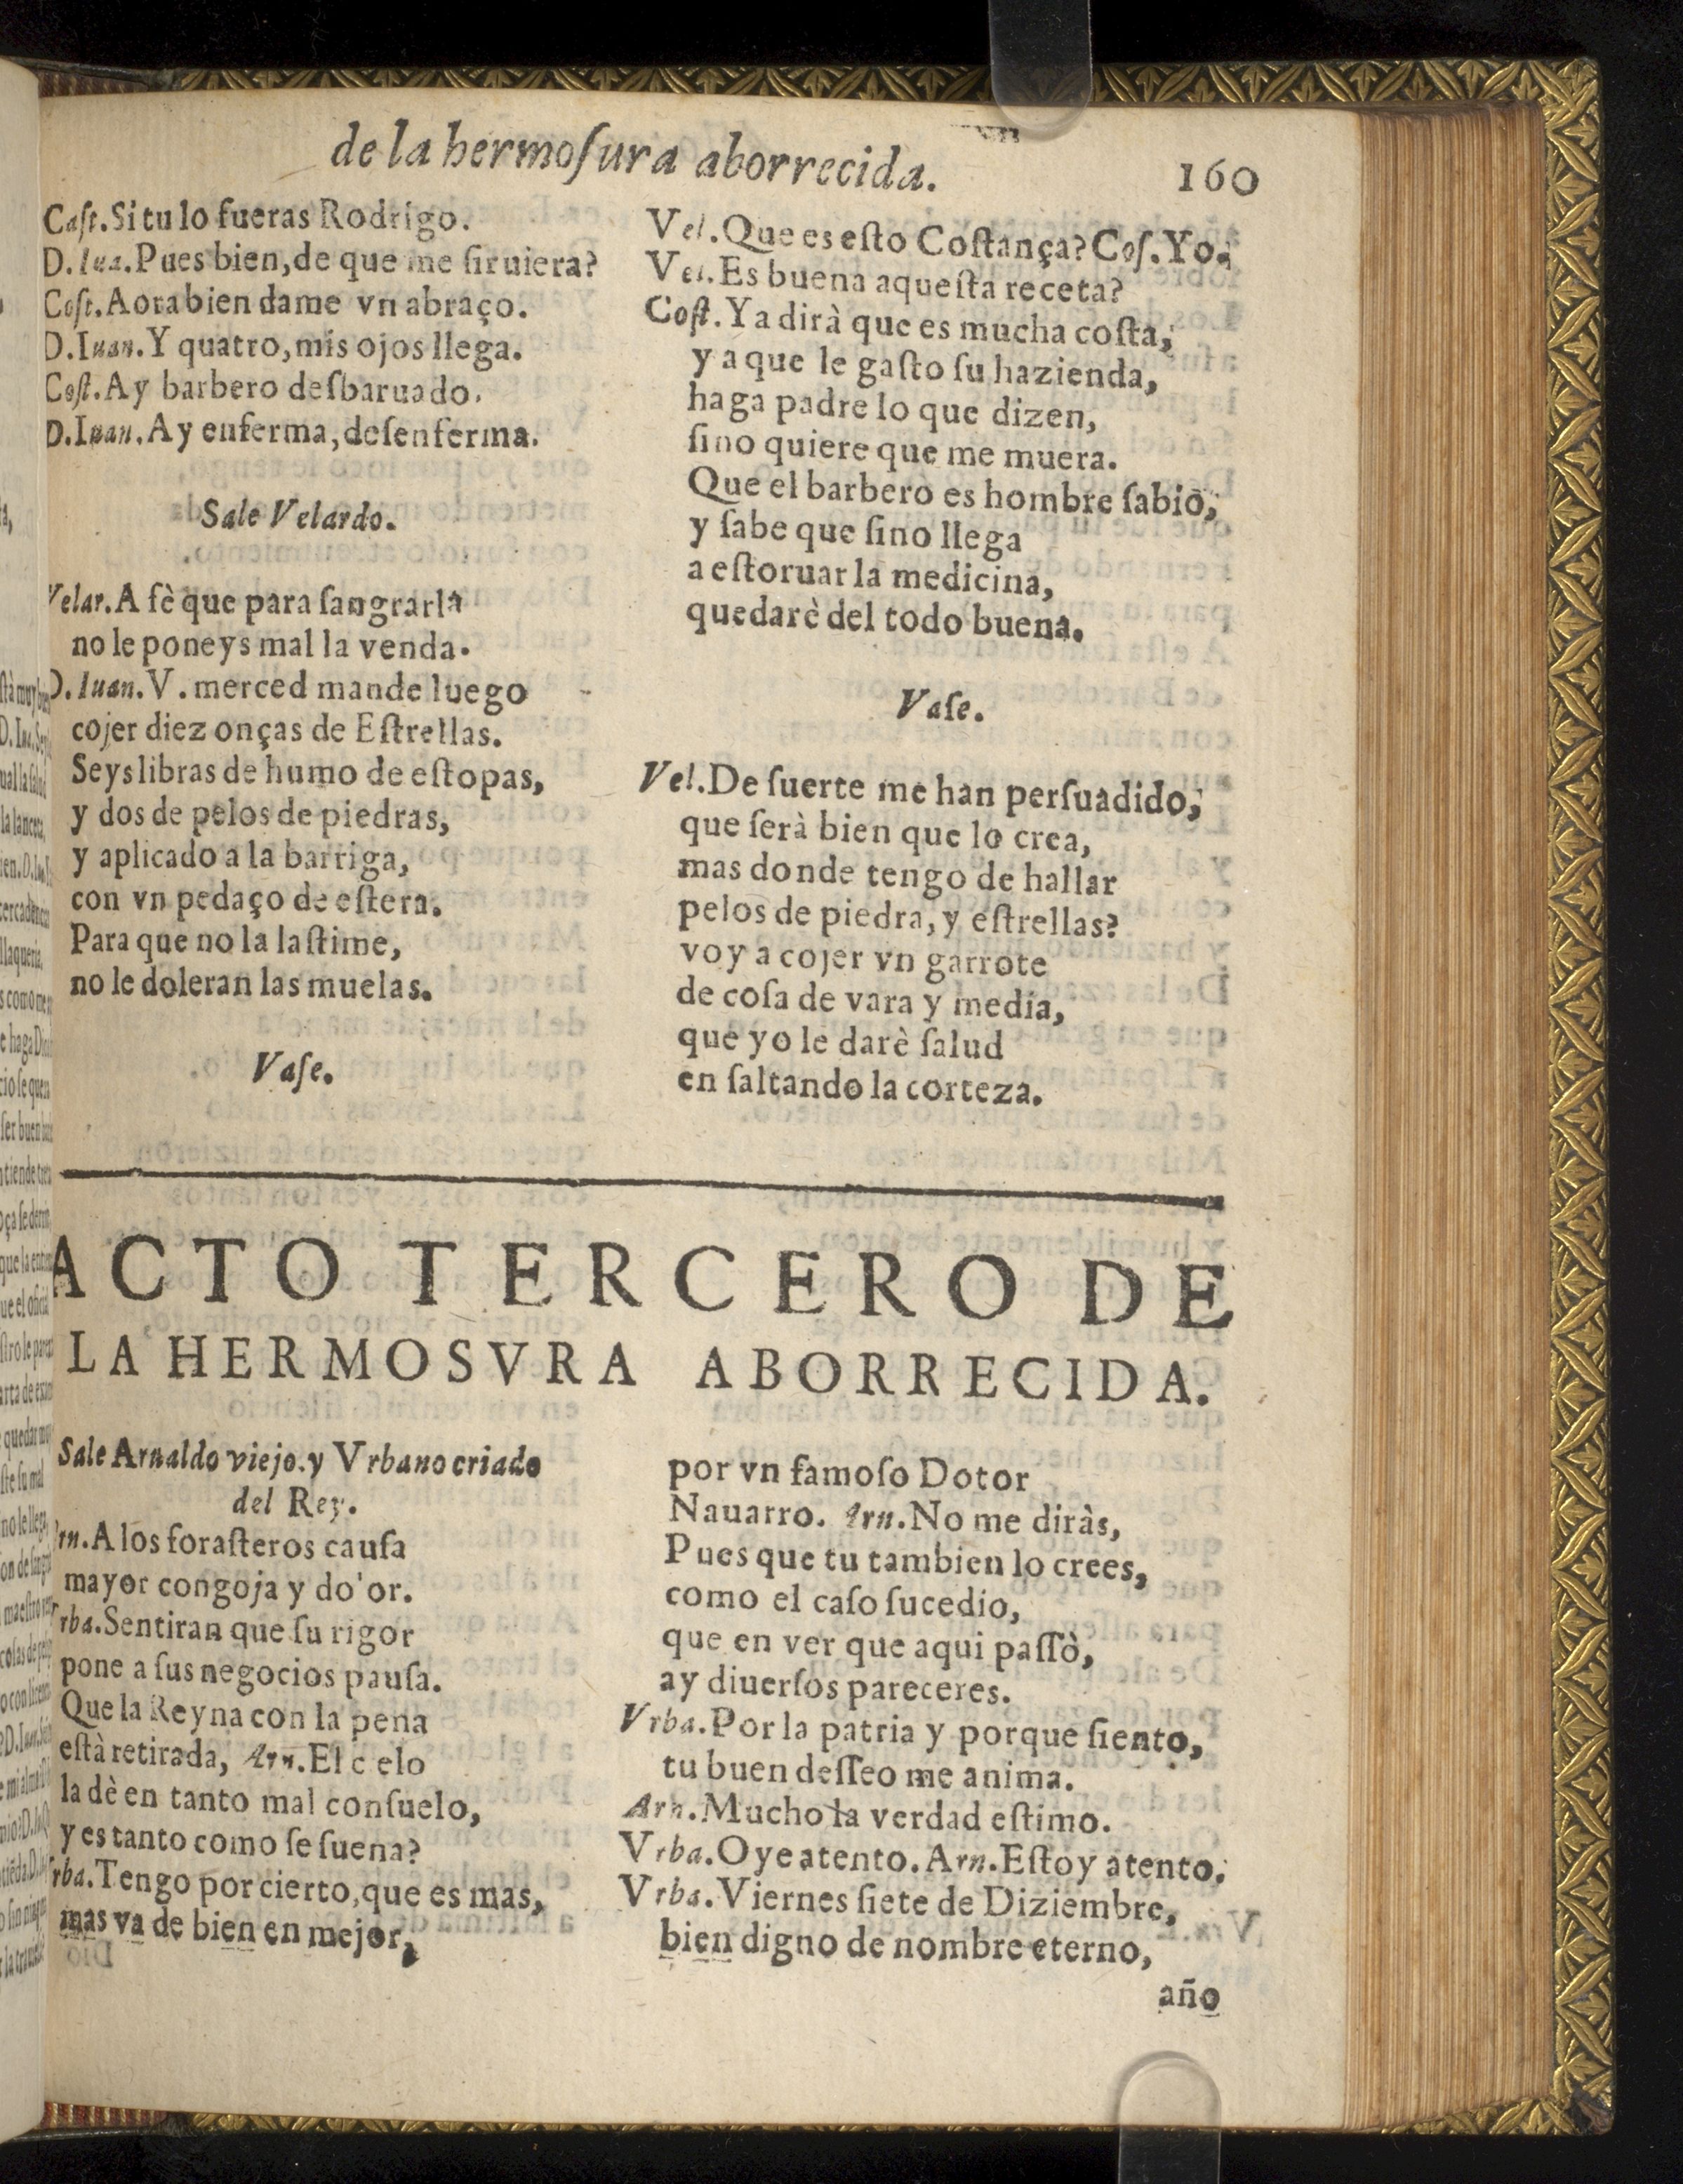 de la hermoſura aborrecida.
160
Caſt. Si tu lo fueras Rodrigo.
D. Iua. Pues bien, de que me ſiruiera?
Coſt. Aora bien dame vn abraço.
D. Iuan. Y quatro, mis ojos llega.
Coſt. Ay barbero deſbaruado.
D. Iuan. Ay enferma, deſenferma.
Sale Velardo.
Velar. A fè que para ſangrarla
no le poneys mal la venda.
D. Iuan. V. merced mande luego
cojer diez onças de Eſtrellas.
Seys libras de humo de eſtopas,
y dos de pelos de piedras,
y aplicado a la barriga,
con vn pedaço de eſtera.
Para que no la laſtime,
no le doleran las muelas.
Vaſe.
Vel. Que es eſto Coſtança? Coſ. Yo.
Vel. Es buena aqueſta receta?
Coſt. Ya dirà que es mucha coſta,
y a que le gaſto ſu hazienda,
haga padre lo que dizen,
ſino quiere que me muera.
Que el barbero es hombre ſabio,
y ſabe que ſino llega
a eſtoruar la medicina,
quedarè del todo buena.
Vaſe.
Vel. De ſuerte me han perſuadido,
que ſerà bien que lo crea,
mas donde tengo de hallar
pelos de piedra, y eſtrellas?
voy a cojer vn garrote
de coſa de vara y media,
que yo le darè ſalud
en ſaltando la corteza.
ACTO TERCERO DE
LA HERMOSVRA ABORRECIDA.
Sale Arnaldo viejo. y Vrbano criado
del Rey.
rn. A los foraſteros cauſa
mayor congoja y do'or.
rba. Sentiran que ſu rigor
pone a ſus negocios pauſa.
Que la Reyna con la pena
eſtà retirada, Arn. El c elo
la dè en tanto mal conſuelo,
y es tanto como ſe ſuena?
rba. Tengo por cierto, que es mas,
mas va de bien en mejor,
por vn famoſo Dotor
Nauarro. Arn. No me diràs,
Pues que tu tambien lo crees,
como el caſo ſucedio,
que en ver que aqui paſſò,
ay diuerſos pareceres.
Vrba. Por la patria y porque ſiento,
tu buen deſſeo me anima.
Arn. Mucho la verdad eſtimo.
Vrba. Oye atento. Arn. Eſtoy atento.
Vrba. Viernes ſiete de Diziembre,
bien digno de nombre eterno,
año